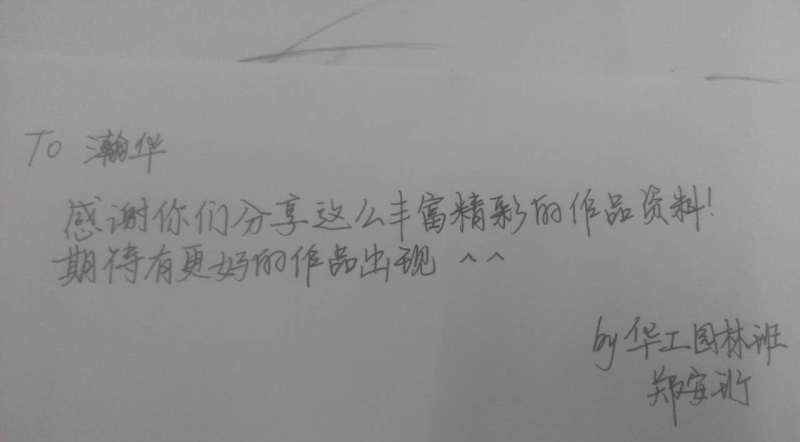 To 瀚华
感谢你们分享这么丰富精彩的作品资料!
期待有更好的作品出现 ^^
by 华工园林班
郑安珩